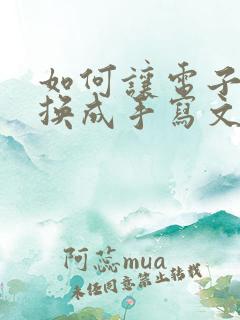 如何讓電子
換成手寫文
阿蕊mua
未经同意禁止转载